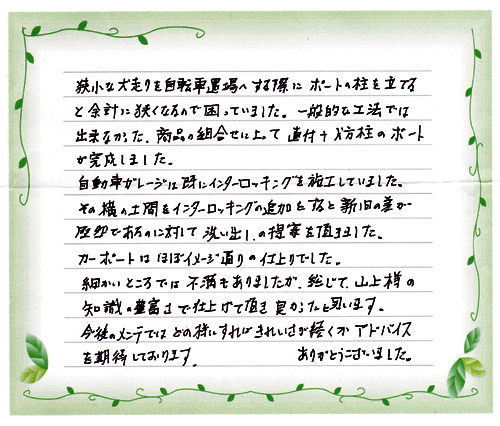 狭小な犬走りを自転車置場へする際に ポートの柱を立てる
と余計に狭くなるので困っていました。一般的な工法では
出来なかった、商品の組合せによって 直付+2方柱のポート
が完成しました。
自動車ガレージは既にインターロッキングを施工していました。
その横の土間をインターロッキングの追加をすると新旧の差が
歴然であるのに対して 洗い出しの提案を頂きました。
カーポートは ほぼイメージ通りの仕上りでした。
細かいところでは 不満もありましたが、総じて、山上様の
知識の豊富さで仕上げて頂き 良かったと思います。
今後のメンテでは どの様にすれば きれいさが続くか アドバイス
を期待しております。 ありがとうございました。